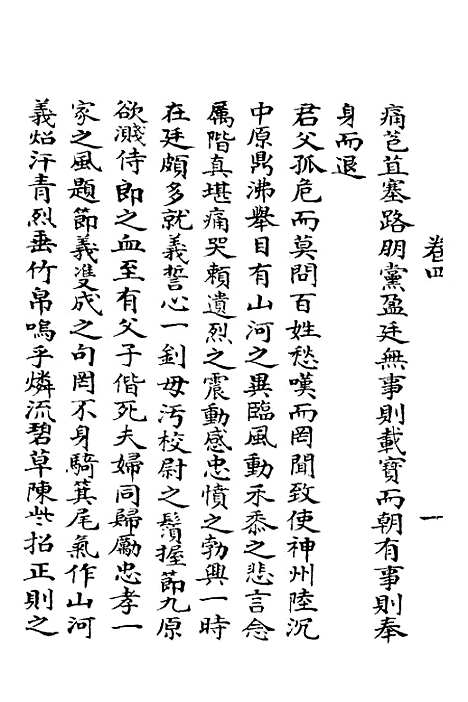 卷四　一
痛苞苴塞路朋黨盈廷無事則載寶而朝有事則奉
身而退
君父孤危而莫問百姓愁嘆而罔聞致使神州陸沉
中原鼎沸舉目有山河之異臨風動禾黍之悲言念
厲階真堪痛哭賴遺烈之震動感忠憤之勃興一時
在廷頗多就義誓心一劍毋汚校尉之鬚握節九原
欲濺侍郎之血至有父子偕死夫婦同歸勵忠孝一
家之風題節義雙成之句罔不身騎箕尾氣作山河
義炤汗青烈垂竹帛嗚乎燐流碧草陳些招正則之